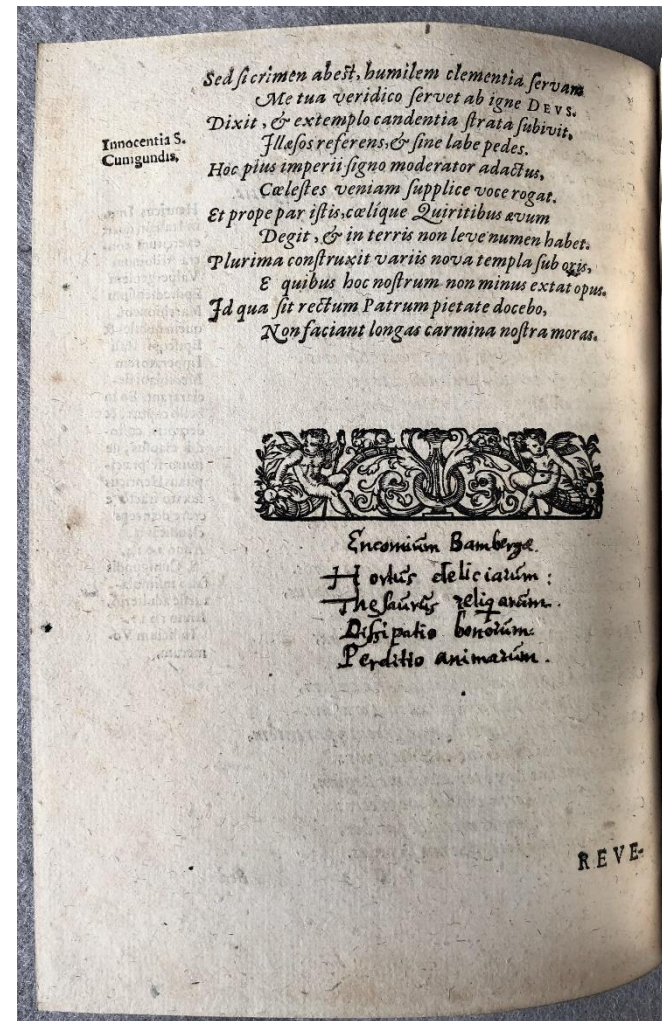 Sed si crimen abest, humilem clementia servam
Me tua veridico servet ab igne DEVS.
Dixit, & extemplo candentia strata subivit,
Illæsos referens, & sine labe pedes.
Innocentia S.
Cunigundis,
Hoc pius imperii signo moderator adactus,
Cœlestes veniam supplice voce rogat.
Et prope par istis, cœlíque Quiritibus ævum
Degit, & in terris non leve numen habet.
Plurima construxit variis nova templa sub oris,
E quibus hoc nostrum non minus extat opus.
Id qua sit rectum Patrum pietate docebo,
Non faciant longas carmina nostra moras.
Encomium Bambergæ.
Hortus deliciarum:
Thesaurus reliqarum.
Dissipatio bonorum.
Perditio animarum.
REVE-